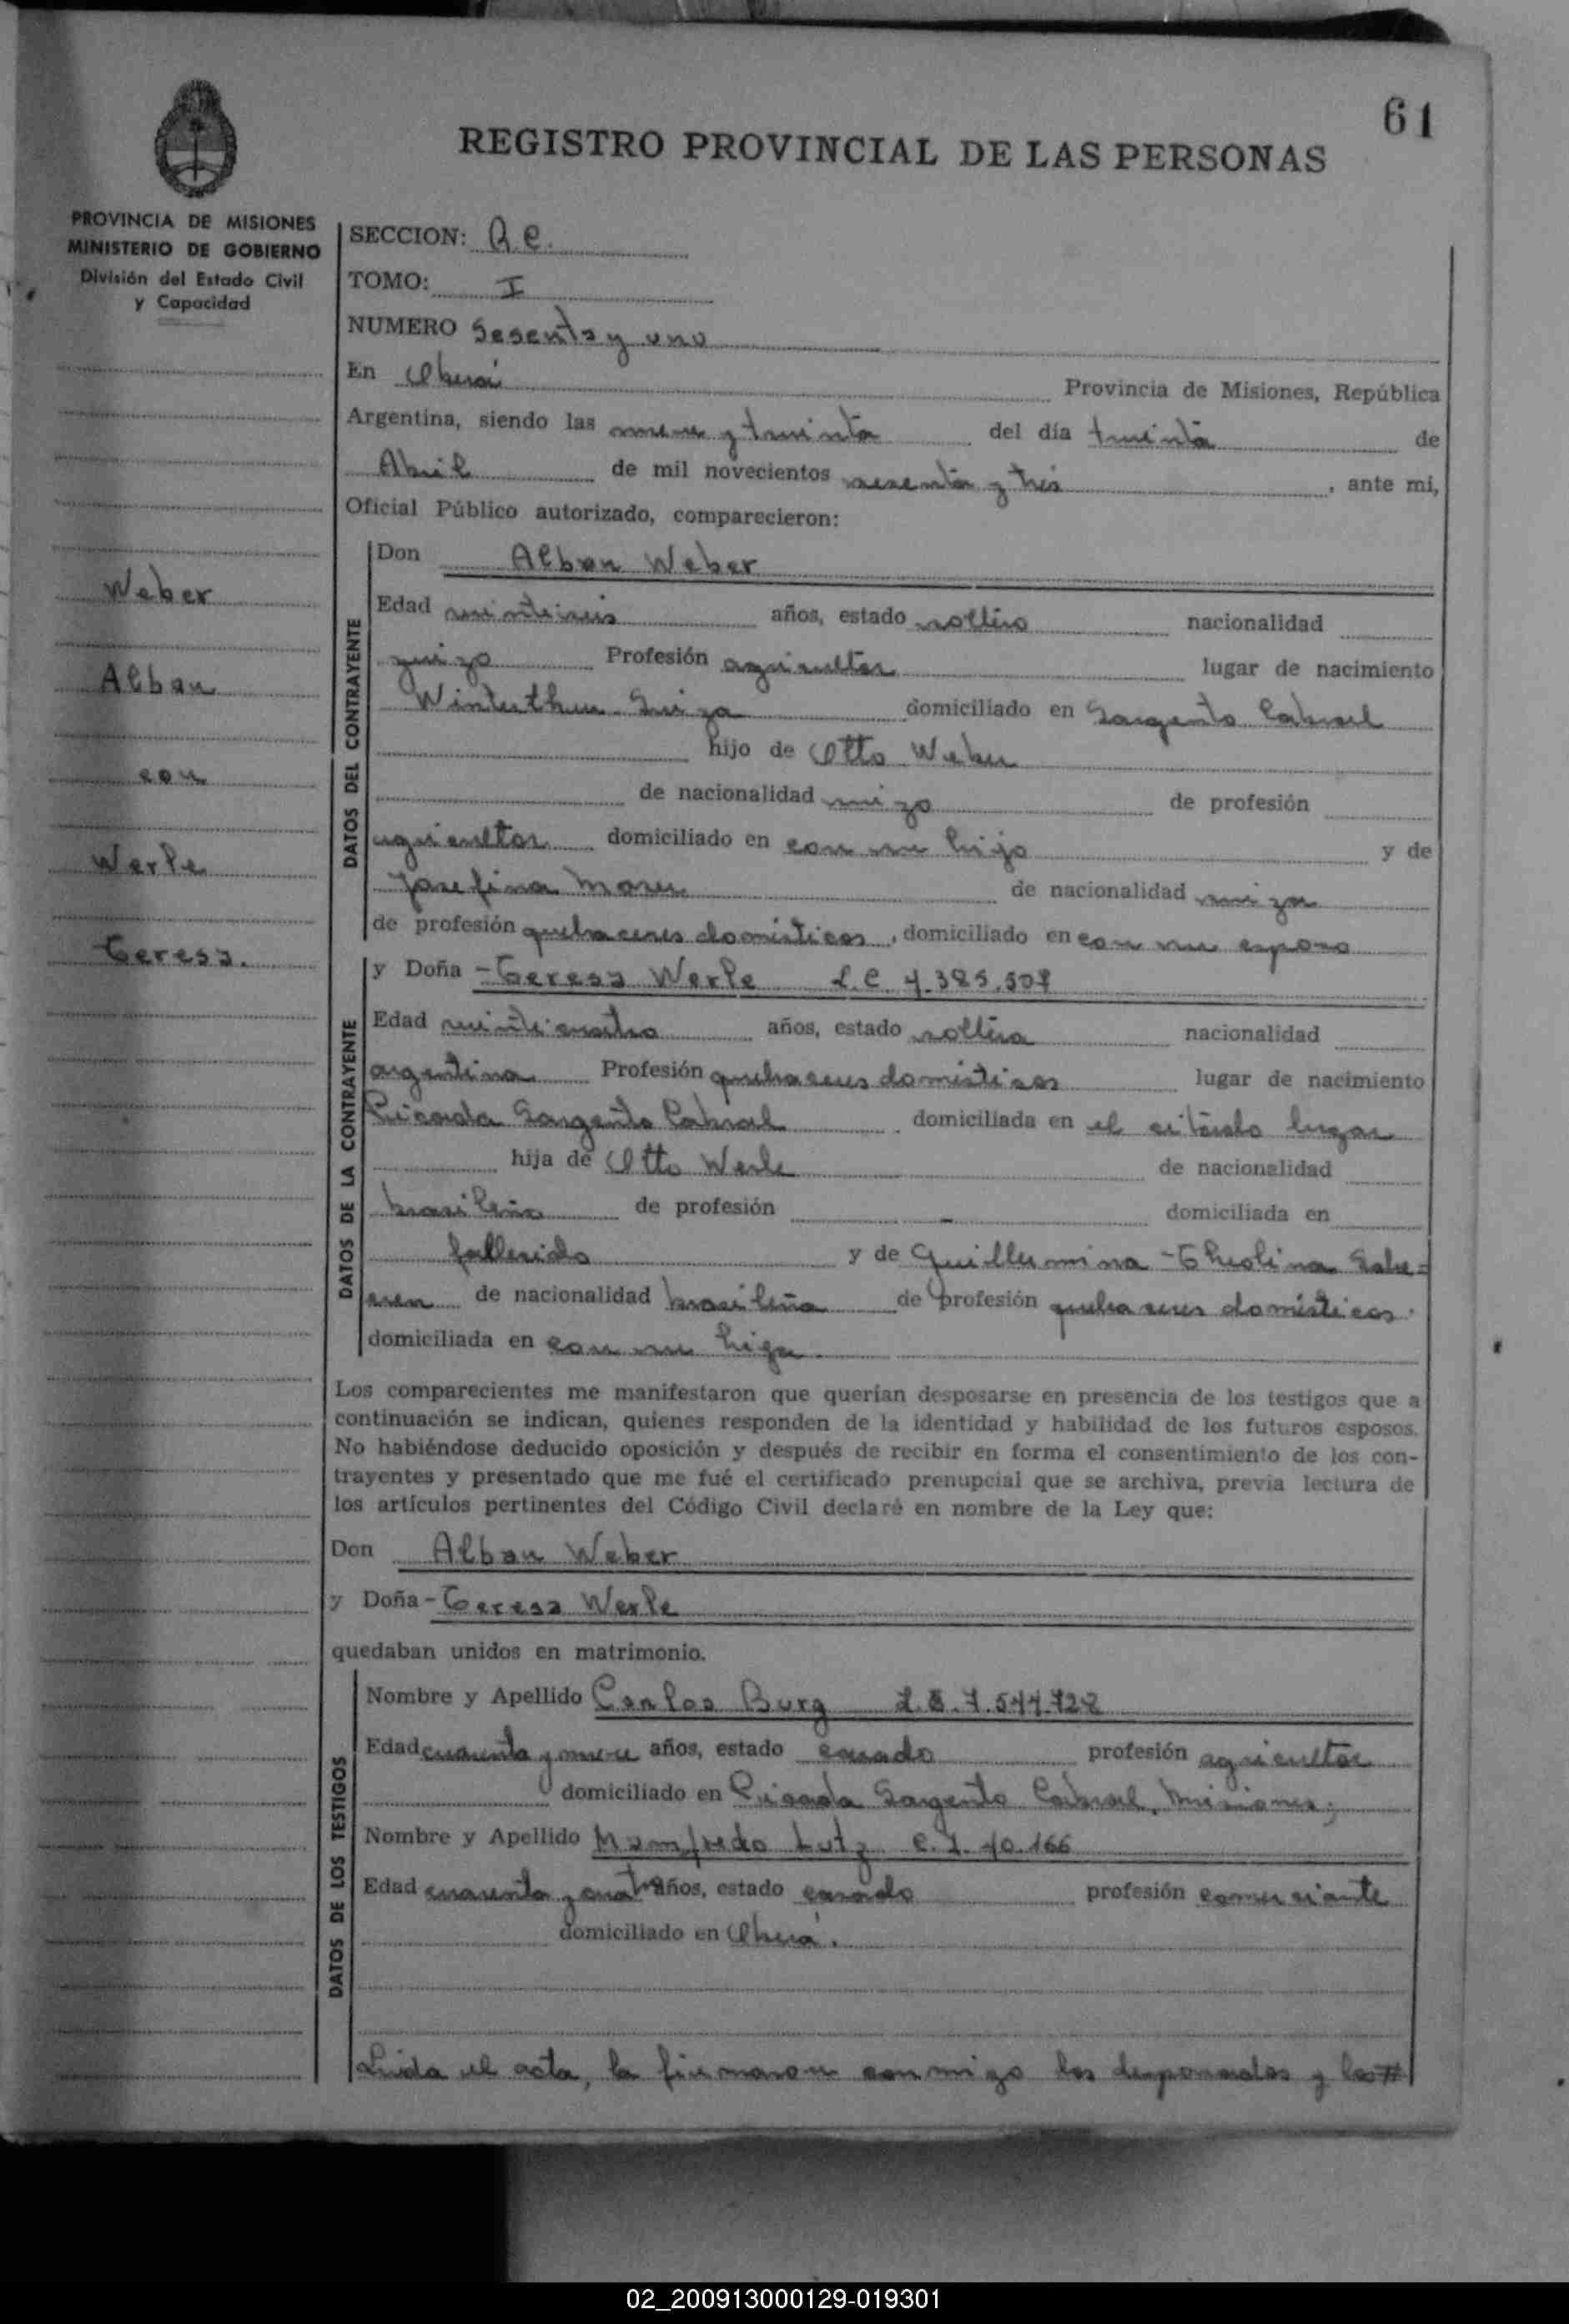 61
REGISTRO PROVINCIAL DE LAS PERSONAS
PROVINCIA DE MISIONES
MINISTERIO DE GOBIERNO
División del Estado Civil
y Capacidad
Weber
Alban
con
Werle
Teresa.
SECCION:
TOMO: I
NUMERO Sesenta y uno
En Oberá Provincia de Misiones, República
Argentina, siendo las nueve y treinta del día treinta de
Abril de mil novecientos sesenta y tres, ante mi,
Oficial Público autorizado, comparecieron:
DATOS DEL CONTRAYENTE
Don Alban Weber
Edad veintiseis años, estado soltero nacionalidad
suizo Profesión agricultor lugar de nacimiento
Winterthur Suiza domiciliado en Sargento Cabral
hijo de Otto Weber
de nacionalidad suizo de profesión
agricultor domiciliado en con su hijo y de
Josefina Moser de nacionalidad suiza
de profesión quehaceres domésticos, domiciliado en con su esposo
DATOS DE LA CONTRAYENTE
y Doña Teresa Werle L.C 4.385.507
Edad veinticuatro años, estado soltera nacionalidad
argentina Profesión quehaceres domésticos lugar de nacimiento
Picada Sargento Cabral domiciliada en el citado lugar
hija de Otto Werle de nacionalidad
brasileño de profesión - domiciliada en
fallecido y de Guillermina
de nacionalidad brasileña de profesión quehaceres domésticos.
domiciliada en con su hija.
Los comparecientes me manifestaron que querían desposarse en presencia de los testigos que a
continuación se indican, quienes responden de la identidad y habilidad de los futuros esposos.
No habiéndose deducido oposición y después de recibir en forma el consentimiento de los con-
trayentes y presentado que me fué el certificado prenupcial que se archiva, previa lectura de
los artículos pertinentes del Código Civil declaré en nombre de la Ley que:
Don Alban Weber
y Doña Teresa Werle
quedaban unidos en matrimonio.
DATOS DE LOS TESTIGOS
Nombre y Apellido Carlos Burg L.E. 7.544.728
Edad cuarenta y nueve años, estado casado profesión agricultor
domiciliado en Picada Sargento Cabral, Misiones;
Nombre y Apellido Manfredo Lutz C.I. 40.166
Edad cuarenta y cuatro años, estado casado profesión comerciante
domiciliado en Oberá.
Leida el acta, la firmaron conmigo los desposados y los#
02_200913000129-019301